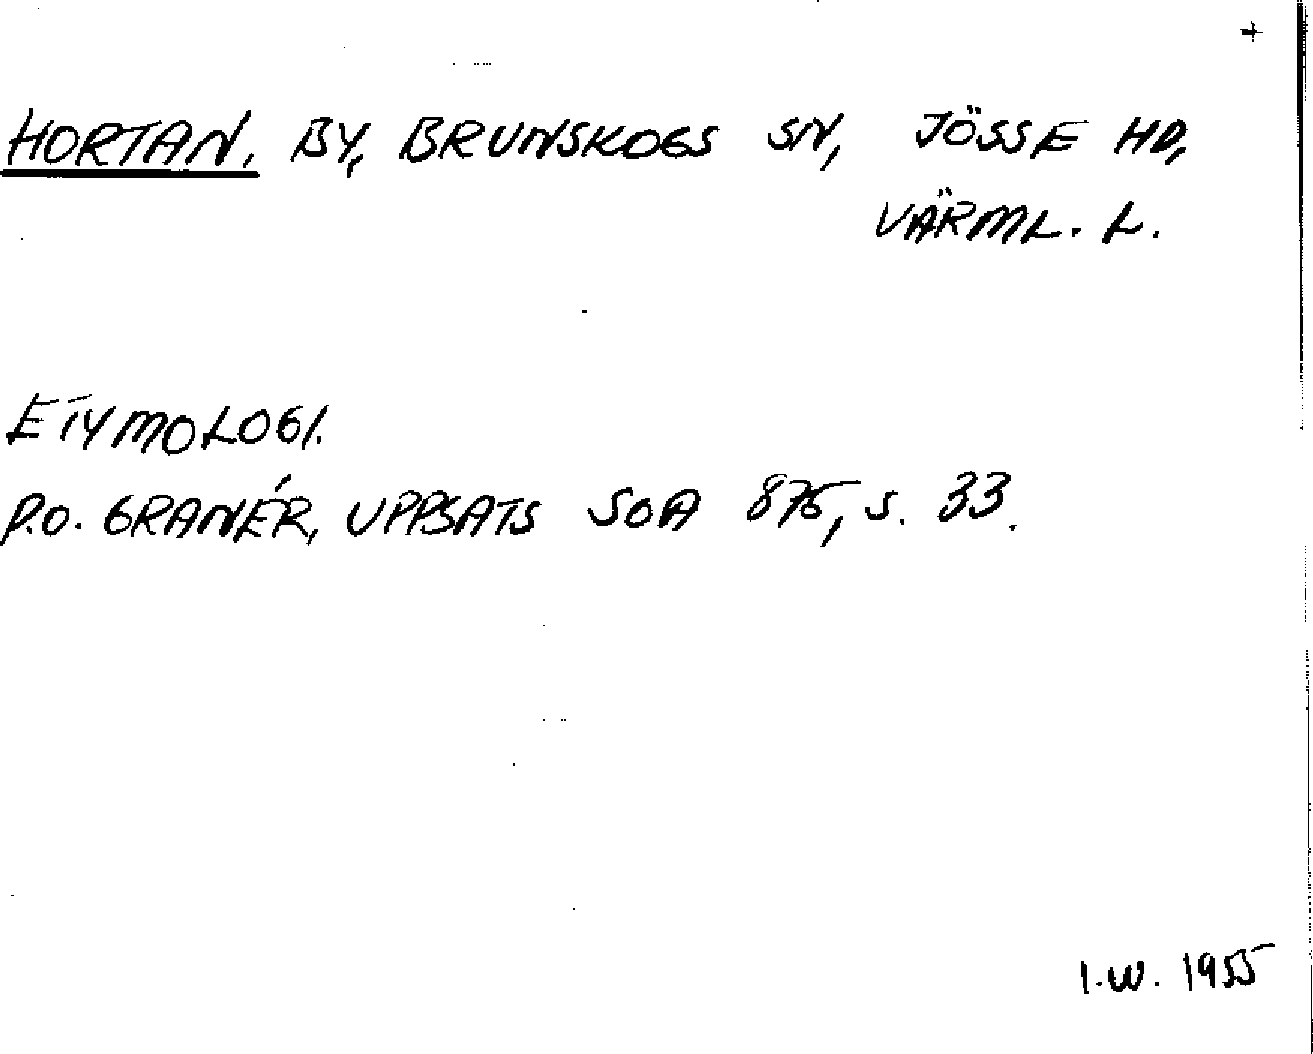 +
HORTAN, BY, BRUNSKOGS SN, JÖSSE HD,
VÄRML. L.
ETYMOLOGI.
P.O. GRANÉR, UPPSATS SOA 875, S. 33.
I.W. 1955